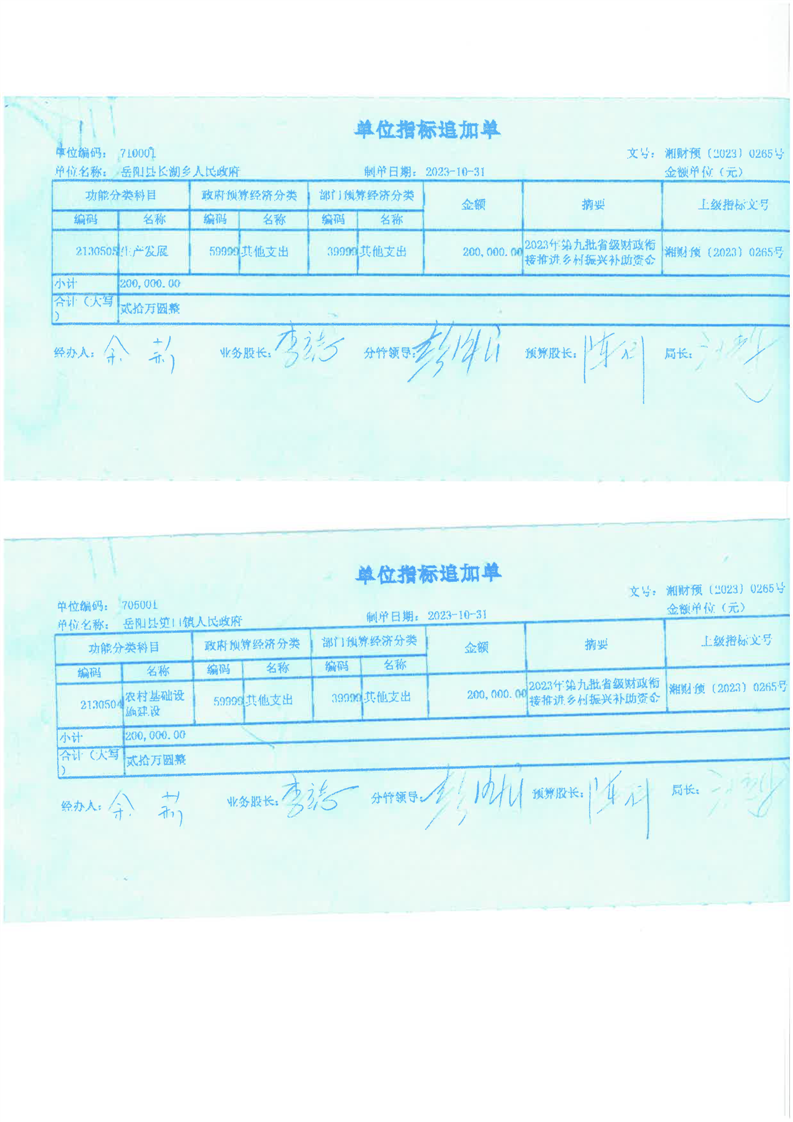 单位指标追加单
单位编码： 710001 文号： 湘财预〔2023〕0265号
单位名称： 岳阳县长湖乡人民政府 制单日期： 2023-10-31 金额单位（元）
功能分类科目 政府预算经济分类 部门预算经济分类 金额 摘要 上级指标文号
编码 名称 编码 名称 编码 名称
2130505 生产发展 59999 其他支出 39999 其他支出 200,000.00 2023年第九批省级财政衔 湘财预〔2023〕0265号
接推进乡村振兴补助资金
小计 200,000.00
合计（大写 贰拾万圆整
）
经办人： 余 业务股长： 李 分管领导： 彭 预算股长： 陈 局长：
单位指标追加单
单位编码： 705001 文号： 湘财预〔2023〕0265号
单位名称： 岳阳县筻口镇人民政府 制单日期： 2023-10-31 金额单位（元）
功能分类科目 政府预算经济分类 部门预算经济分类 金额 摘要 上级指标文号
编码 名称 编码 名称 编码 名称
2130504 农村基础设 59999 其他支出 39999 其他支出 200,000.00 2023年第九批省级财政衔 湘财预〔2023〕0265号
施建设 接推进乡村振兴补助资金
小计 200,000.00
合计（大写 贰拾万圆整
）
经办人： 余 业务股长： 李 分管领导： 彭 预算股长： 陈 局长：